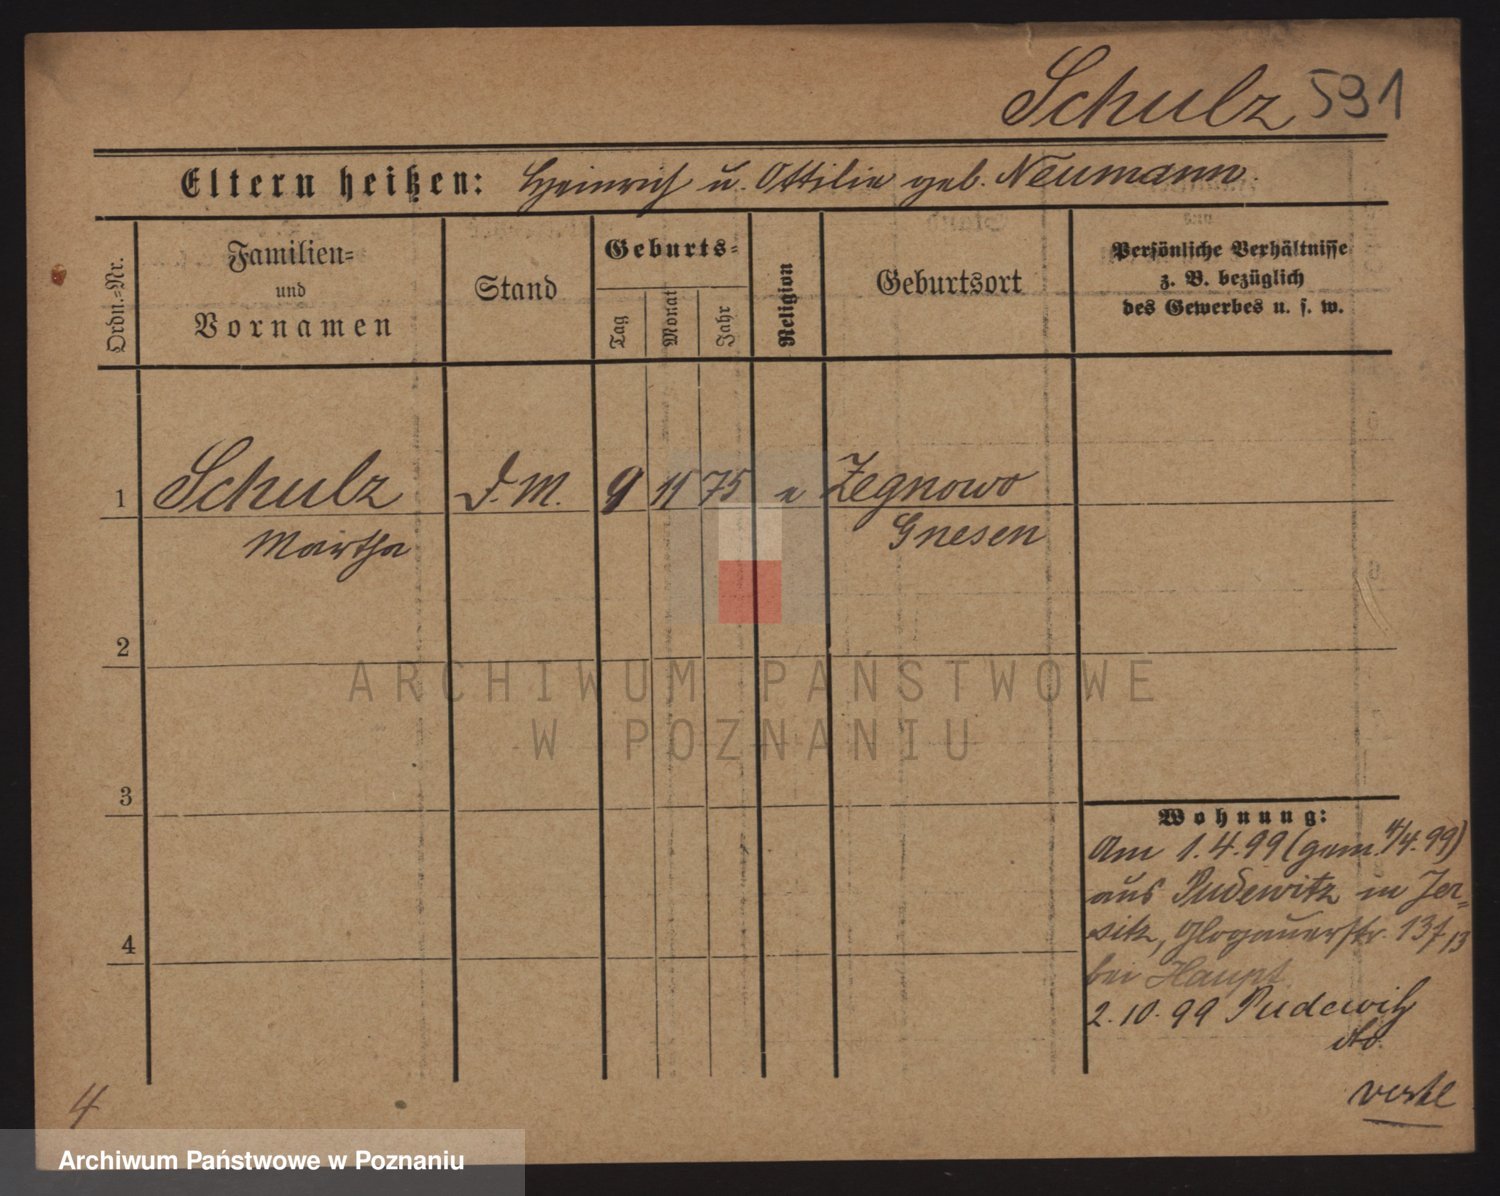 Schulz 591
Eltern heißen: Heinrich u. Ottilie geb. Neumann.
Ordn.=Nr.
Familien=
und
Vornamen
Stand
Geburts=
Tag
Monat
Jahr
Religion
Geburtsort
Persönliche Verhältnisse
z. B. bezüglich
des Gewerbes u. s. w.
1 Schulz D.M. 9 11 75 e Zegnowo
Martha Gnesen
2
3
4
Wohnung:
Am 1.4.99 (gem. 4/4.99)
aus Pudewitz in Jer=
sitz, Glogauerstr. 137
bei Haupt
2.10.99 Pudewitz
4
ARCHIWUM PAŃSTWOWE
W POZNANIU
Archiwum Państwowe w Poznaniu